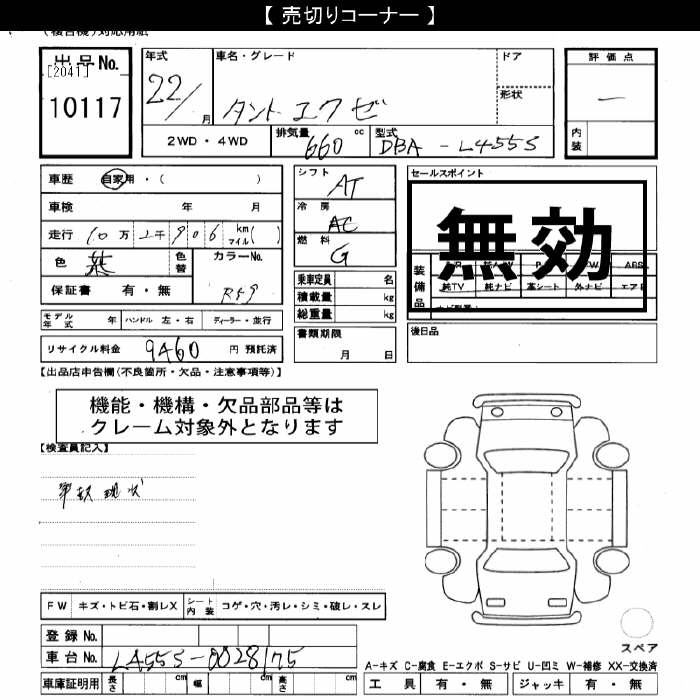 【 売切りコーナー 】
出品No. [2041] 10117
年式 22/ 月
車名・グレード タントエグゼ
ドア
形状
評価点 —
内装
2WD・4WD
排気量 660 cc
型式 DBA - L455S
車歴 自家用・( )
車検 年 月
走行 10万 2千 906 km マイル( )
色 紫 色替 カラーNo. R59
保証書 有・無
シフト AT
冷房 AC
燃料 G
乗車定員 名
積載量 kg
総重量 kg
セールスポイント
無効
装備品 ABS
純TV 純ナビ 革シート 外ナビ エアB
モデル年式 年 ハンドル 左・右 ディーラー・並行
書類期限 月 日
後日品
リサイクル料金 9460 円 預託済
【出品店申告欄(不良箇所・欠品・注意事項等)】
機能・機構・欠品部品等は
クレーム対象外となります
【検査員記入】
事故現状
FW キズ・トビ石・割レX シート内装 コゲ・穴・汚レ・シミ・破レ・スレ
登録No.
車台No. L455S-0028175
車庫証明用 長さ cm 幅 cm 高さ cm
スペア
A-キズ C-腐食 E-エクボ S-サビ U-凹ミ W-補修 XX-交換済
工具 有・無 ジャッキ 有・無